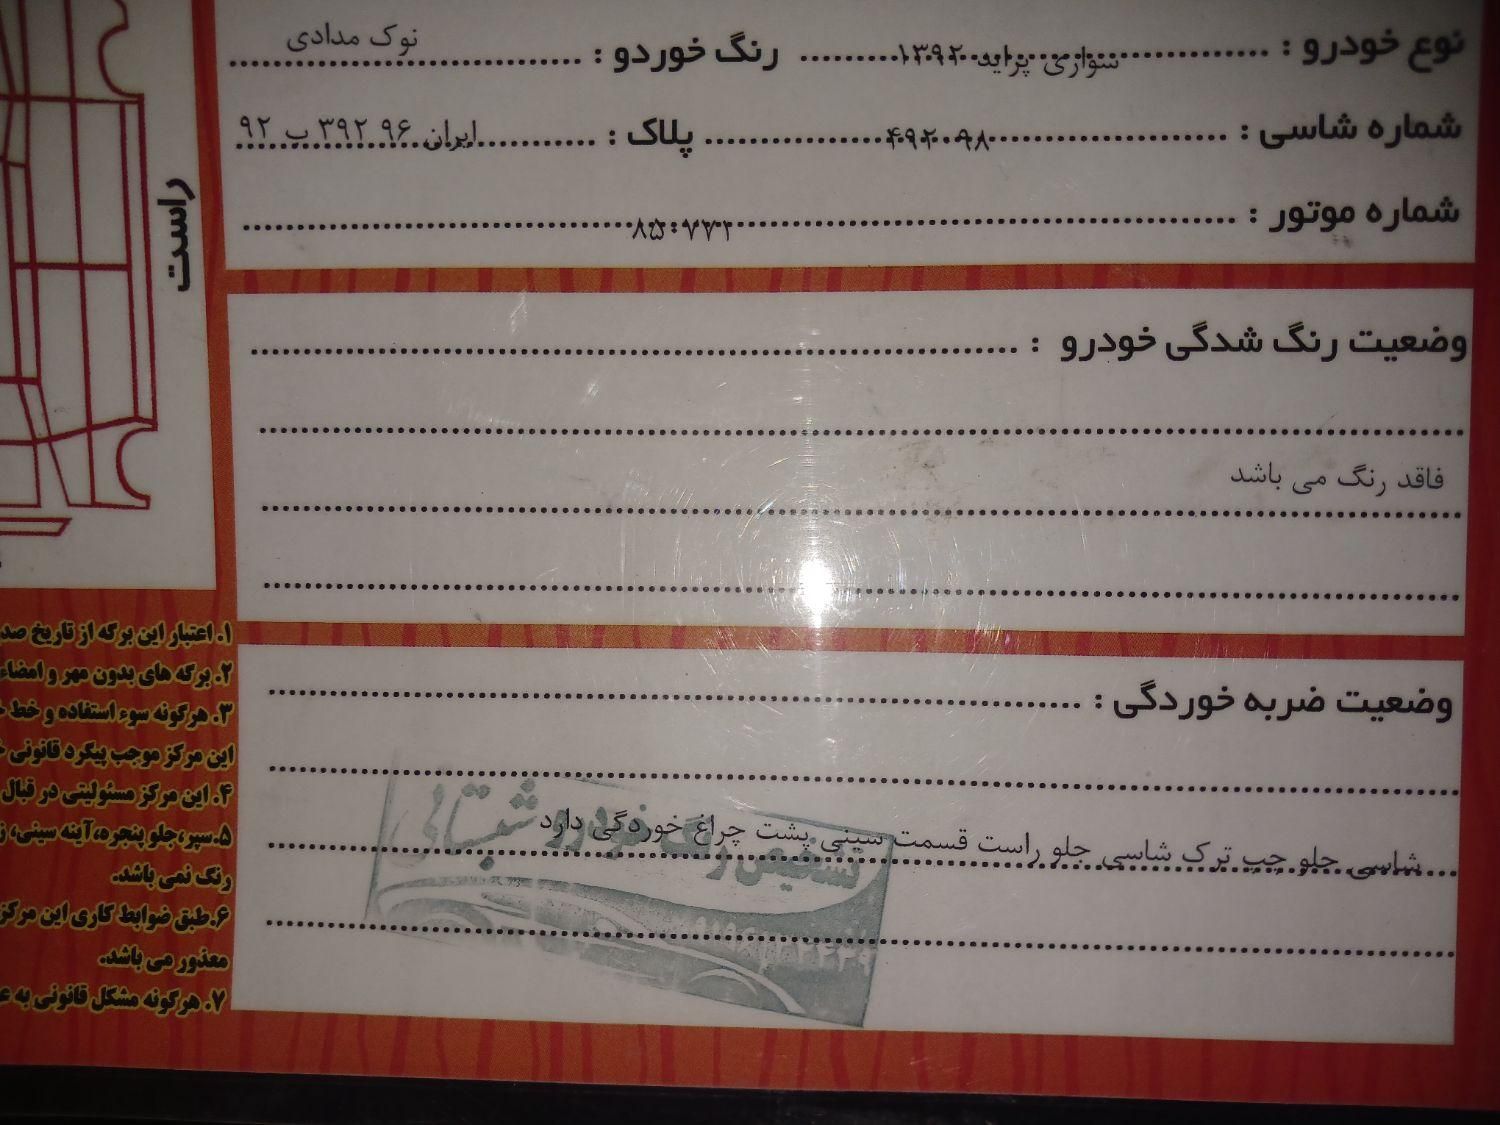 نوع خودرو : سواری پراید ۱۳۹۲ رنگ خوردو : نوک مدادی
شماره شاسی : ۴۹۲۰۹۸ پلاک : ایران ۹۶ ۳۹۲ ب ۹۲
شماره موتور :
راست
وضعیت رنگ شدگی خودرو :
فاقد رنگ می باشد
وضعیت ضربه خوردگی :
شاسی جلو چپ ترک شاسی جلو راست قسمت سینی پشت چراغ خوردگی دارد
تشخیص رنگ خودرو شبستانی
۱. اعتبار این برگه از تاریخ صد
۲. برگه های بدون مهر و امضاء
۳. هرگونه سوء استفاده و خط
این مرکز موجب پیگرد قانونی
۴. این مرکز مسئولیتی در قبال
۵. سپر، جلو پنجره، آینه سینی، ز
رنگ نمی باشد.
۶. طبق ضوابط کاری این مرکز
معذور می باشد.
۷. هرگونه مشکل قانونی به ع